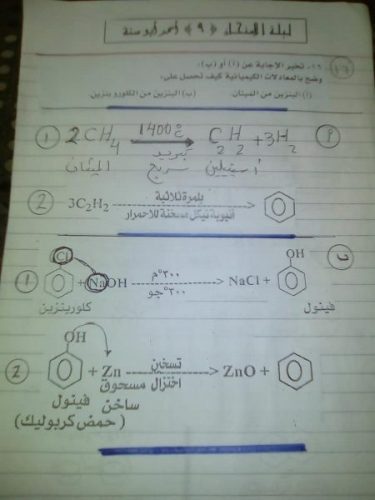 ليلة الامتحان ﴿ ٩ ﴾ أحمد أبو ستة
١٦- تخير الإجابة عن (أ) أو (ب):
وضح بالمعادلات الكيميائية كيف تحصل على:
(أ) البنزين من الميثان (ب) البنزين من الكلورو بنزين
1 2CH4 1400°C C2H2 + 3H2 P
الميثان سريع تبريد أستيلين
2 3C2H2 بلمرة ثلاثية
أنبوبة نيكل مسخنة للاحمرار
ب
1 Cl + NaOH ٣٠٠°م NaCl + OH
٣٠٠ جو
كلوربنزين فينول
2 OH + Zn تسخين ZnO +
اختزال
فينول مسحوق
(حمض كربوليك) ساخن